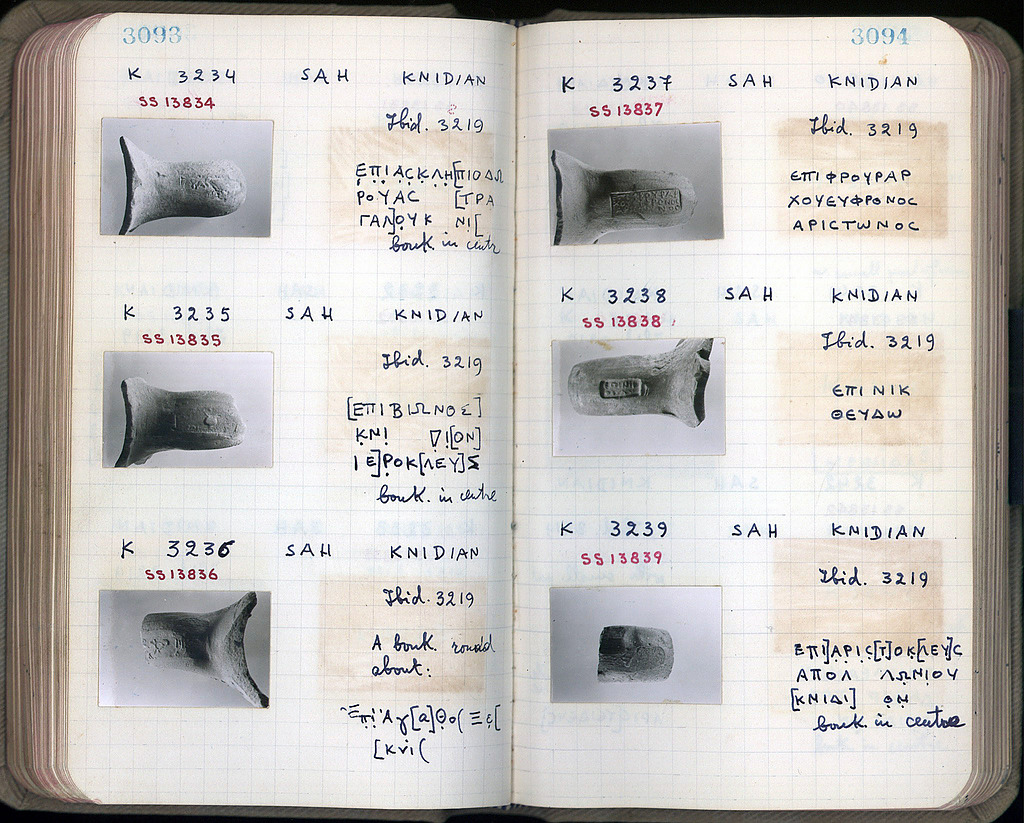 3093
K 3234 SAH KNIDIAN
SS 13834
Ibid. 3219
ΕΠΙΑϹΚΛΗ[ΠΙΟΔΩ
ΡΟΥΑϹ [ΤΡΑ
ΓΑΛ]ΟΥΚ ΝΙ[
bouk. in centr
K 3235 SAH KNIDIAN
SS 13835
Ibid. 3219
[ΕΠΙΒΙΩΝΟΣ]
ΚΝΙ Δ̣Ι[ΟΝ]
ΙΕ]ΡΟΚ[ΛΕΥ]Σ
bouk. in centre
K 3236 SAH KNIDIAN
SS 13836
Ibid. 3219
A bouk. round
about:
Ἐπὶ Ἀγ[α]θο( Ξε[
[κνι(
3094
K 3237 SAH KNIDIAN
SS 13837
Ibid. 3219
ΕΠΙ ΦΡΟΥΡΑΡ
ΧΟΥΕΥΦΡΟΝΟϹ
ΑΡΙϹΤΩΝΟϹ
K 3238 SAH KNIDIAN
SS 13838
Ibid. 3219
ΕΠΙ ΝΙΚ
ΘΕΥΔΩ
K 3239 SAH KNIDIAN
SS 13839
Ibid. 3219
ΕΠΙ]ΑΡΙϹ[Τ]ΟΚ[ΛΕΥ]Ϲ
ΑΠΟΛ ΛΩΝΙΟΥ
[ΚΝΙΔΙ] ΟΝ
bouk. in centre